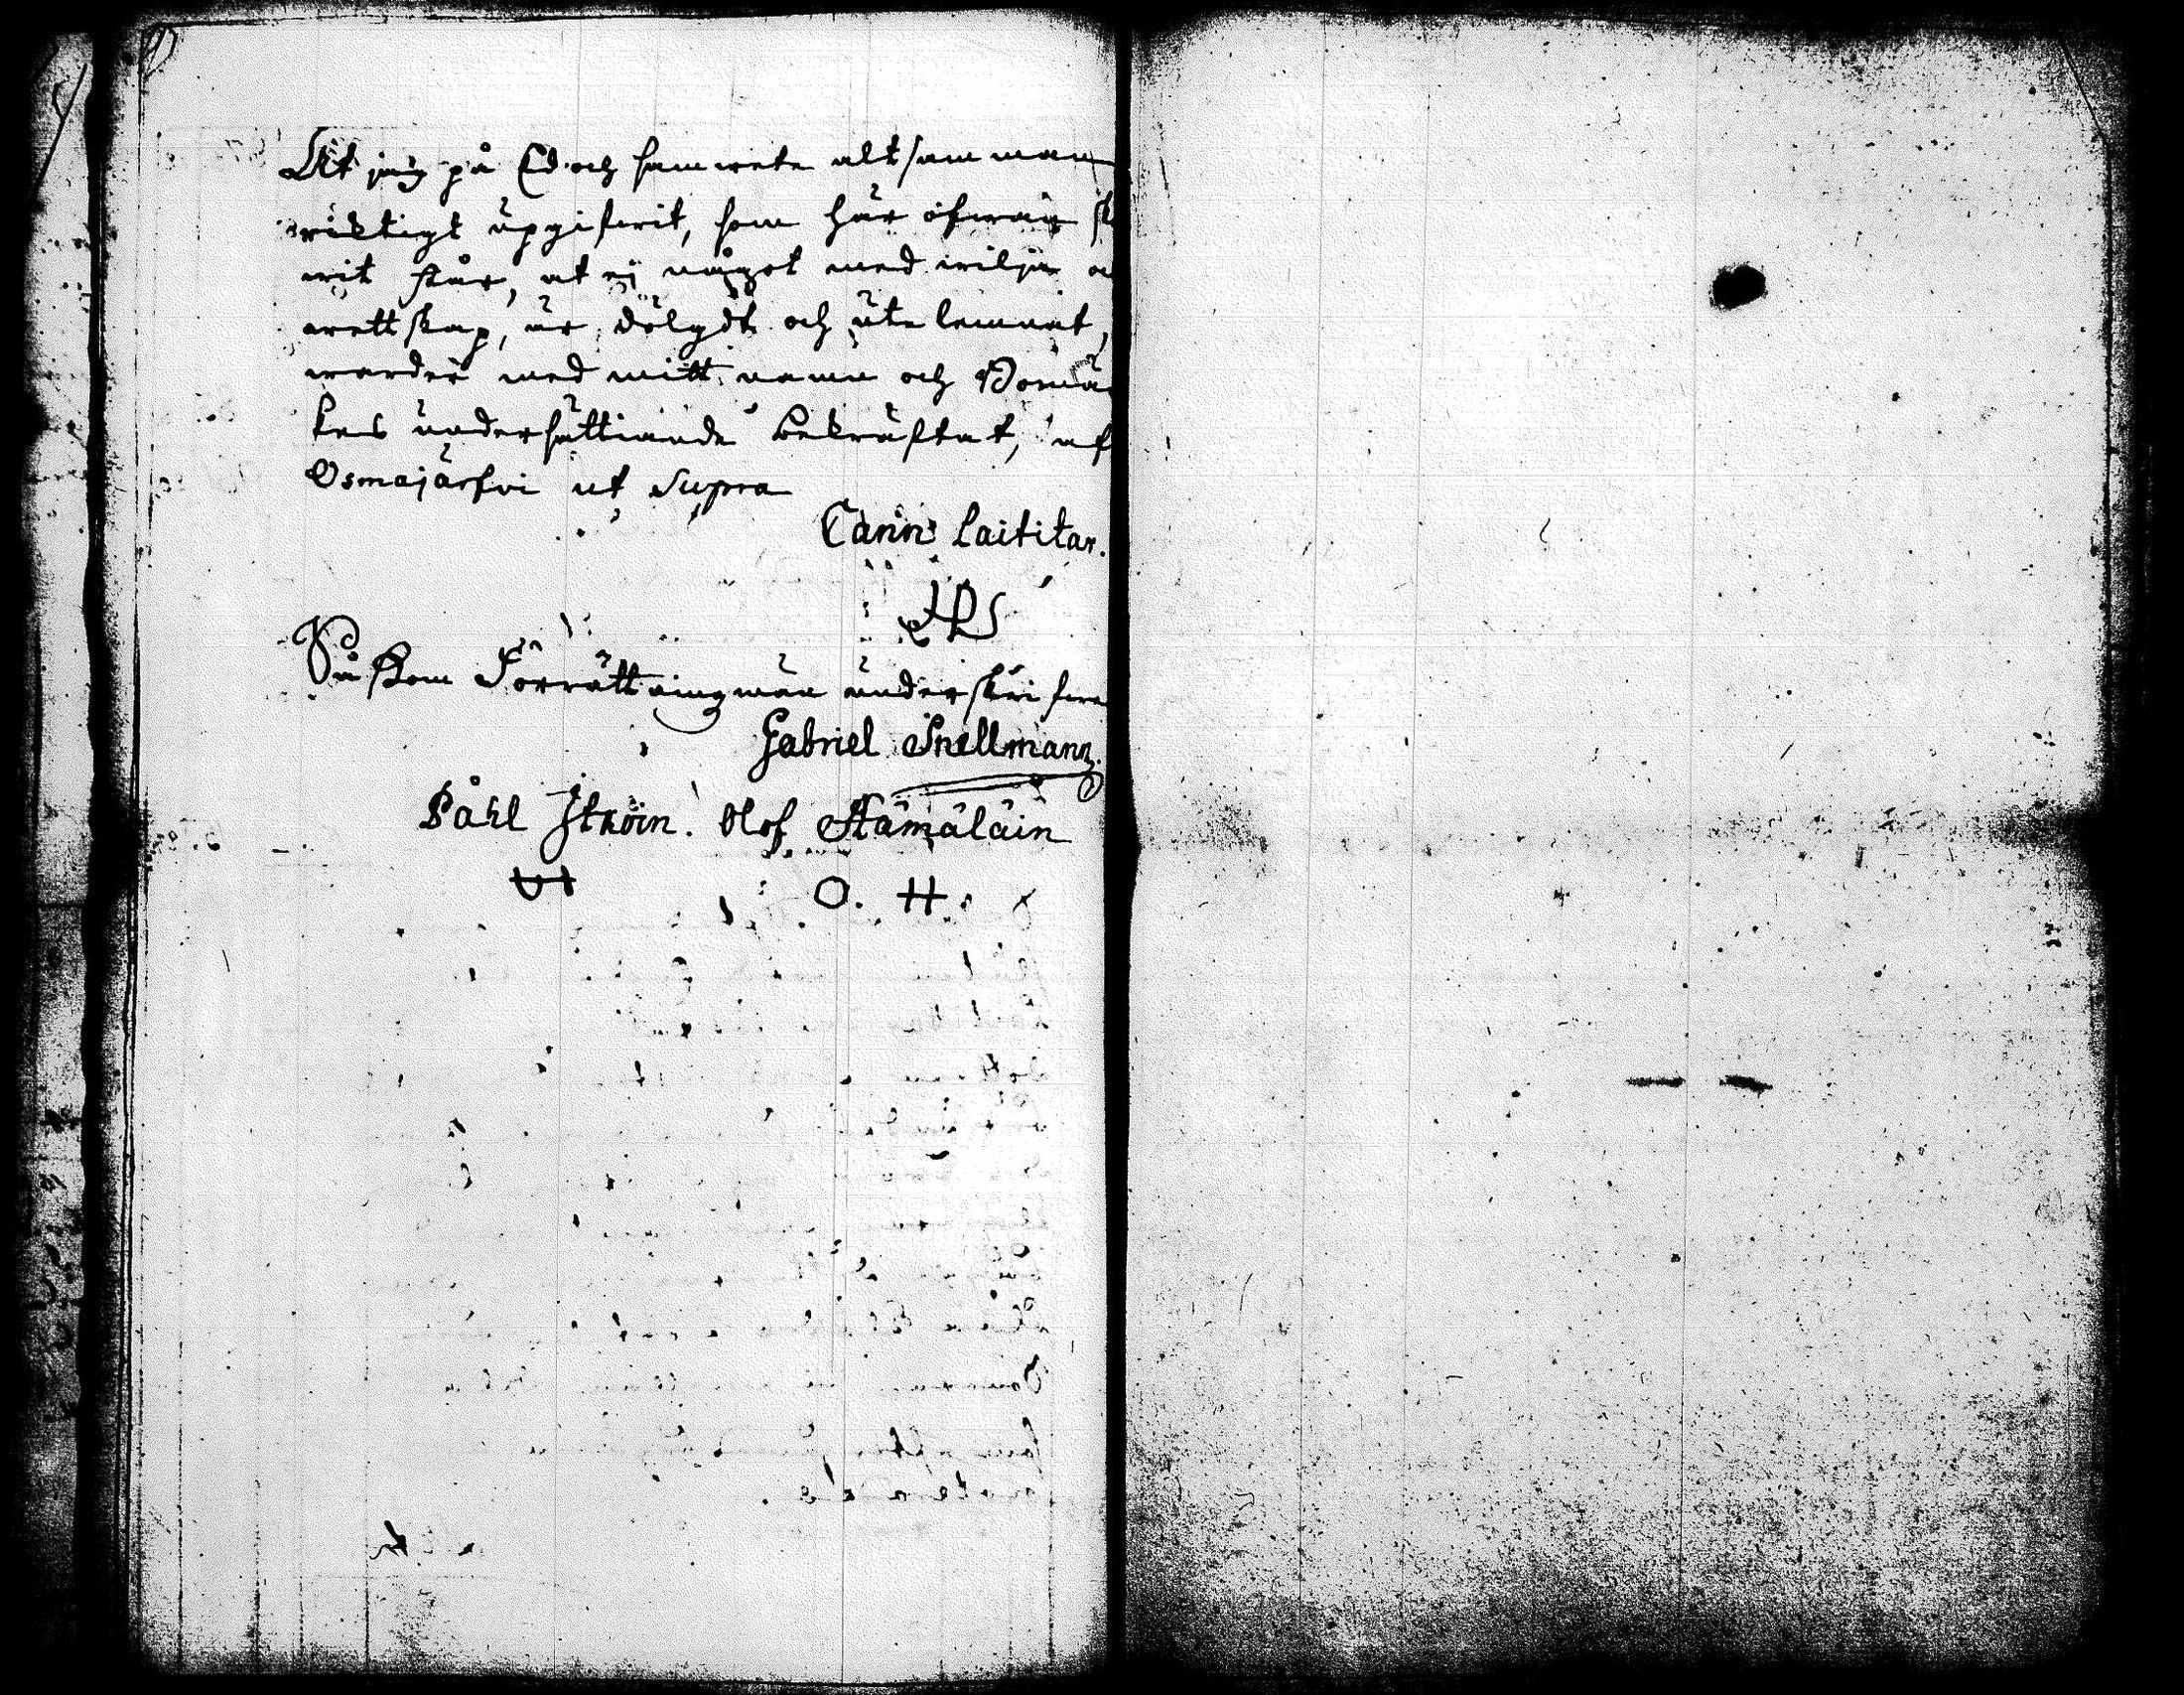 At jag på Ed och samwete altsamman
richtigt upgifwit, som här ofwan sk
wit står, at ej något med wilja oc
wettskap, är dölgdt och ute lemnat,
warder med mitt namn och Bomär
kes undersättiande bekräftat, af
Osmajärfwi ut Supra
Carin Laititar.
Såssom Förrättningmän underskrifwa
Gabriel Snellmann.
Påhl Itkoin. Olof Hämäläin
O. H.